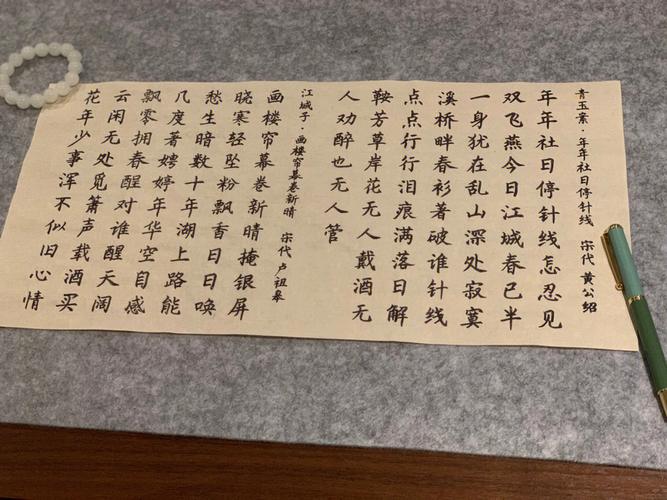 青玉案·年年社日停针线 宋代 黄公绍
年年社日停针线怎忍见
双飞燕今日江城春已半
一身犹在乱山深处寂寞
溪桥畔春衫著破谁针线
点点行行泪痕满落日解
鞍芳草岸花无人戴酒无
人劝醉也无人管
江城子·画楼帘幕卷新晴 宋代 卢祖皋
画楼帘幕卷新晴掩银屏
晓寒轻坠粉飘香日日唤
愁生暗数十年湖上路能
几度著娉婷年华空自感
飘零拥春醒对谁醒天阔
云闲无处觅箫声载酒买
花年少事浑不似旧心情